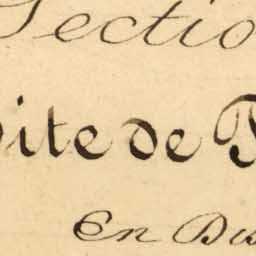 Sectio
ite de
En Dis